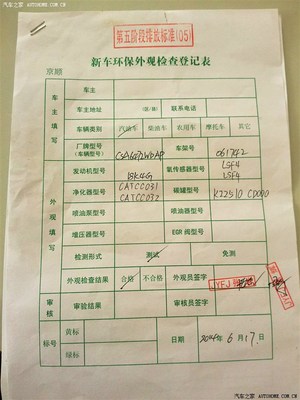 汽车之家 AUTOHOME.COM.CN
第五阶段排放标准(05)
新车环保外观检查登记表
京顺
车主填写
车主
车主地址
(区/县)
联系电话
车辆类别
汽油车 柴油车 农用车 摩托车 其它
厂牌型号
(车辆型号)
车架号
061742
外观填写
发动机型号
LSK4G
氧传感器型号
LSF4
LSF4
净化器型号
CATCC031
CATCC032
碳罐型号
喷油泵型号
喷油器型号
增压器型号
EGR阀型号
检测形式
测试
免测
外观检查结果
合格 不合格
外观员签字
审核
审验结果
审核员签字
标号
黄标
绿标
日期
2014年6月17日
汽车之家 WWW.AUTOHOME.COM.CN